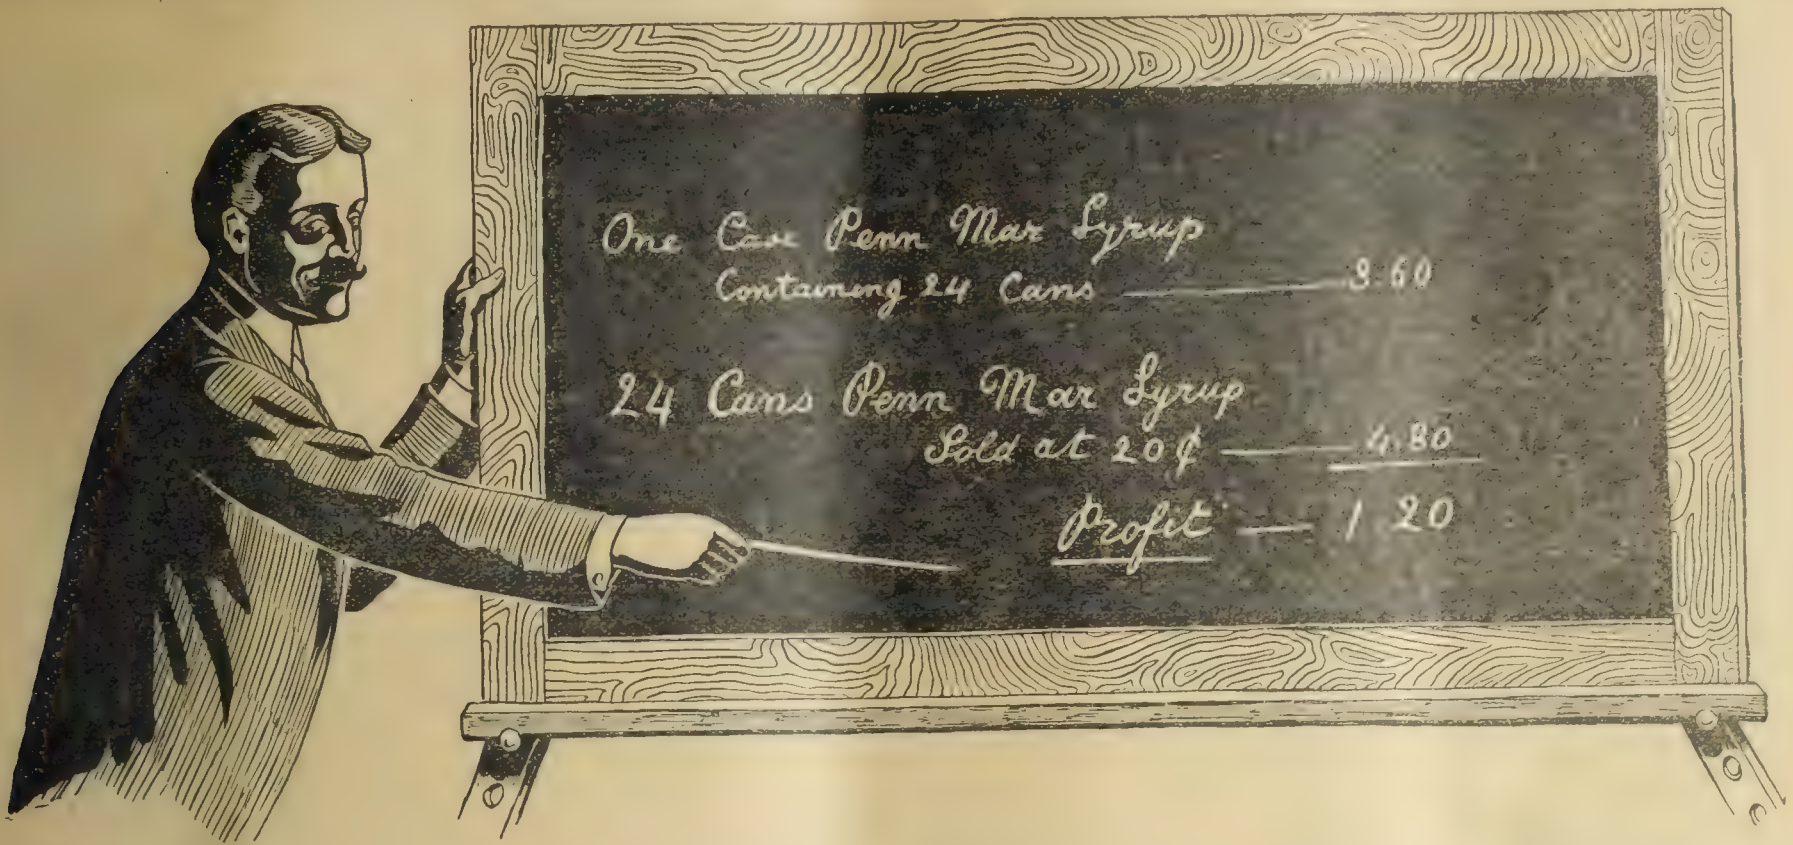 One Case Penn Mar Syrup
Containing 24 Cans 3.60
24 Cans Penn Mar Syrup
Sold at 20¢ 4.80
Profit — 1.20